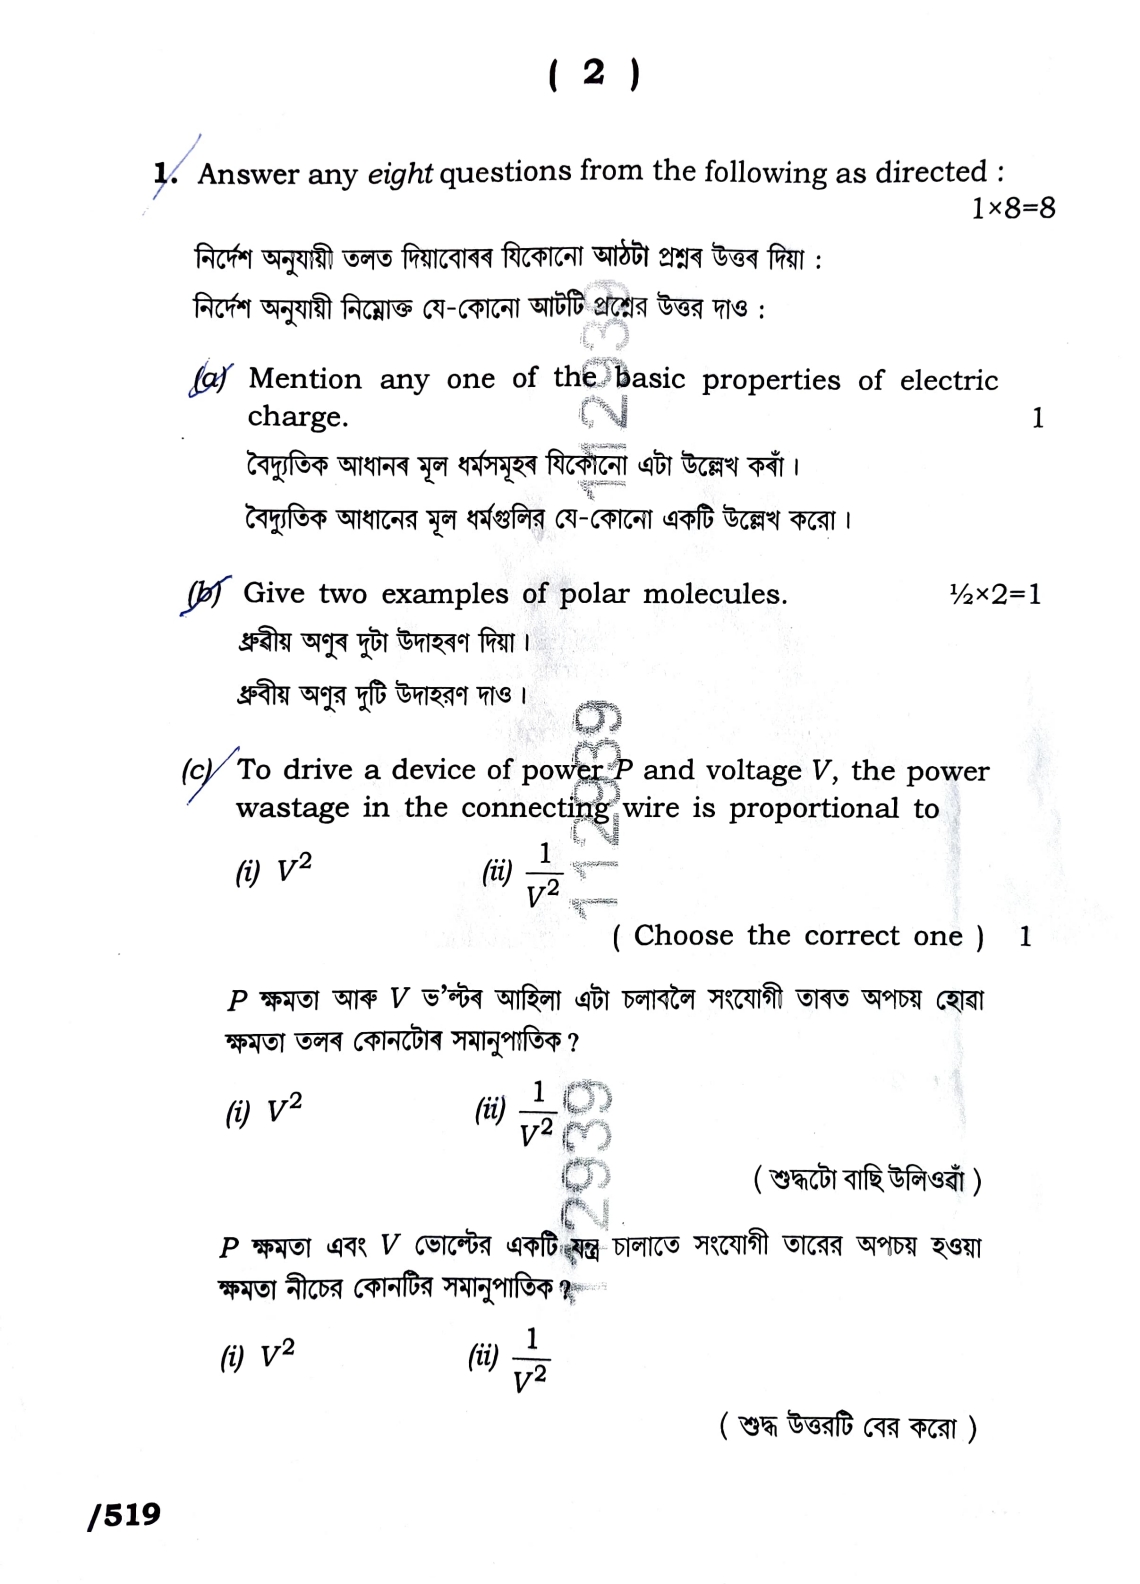 ( 2 )
1. Answer any eight questions from the following as directed :
1×8=8
নিৰ্দেশ অনুযায়ী তলত দিয়াবোৰৰ যিকোনো আঠটা প্ৰশ্নৰ উত্তৰ দিয়া :
নির্দেশ অনুযায়ী নিম্নোক্ত যে-কোনো আটটি প্রশ্নের উত্তর দাও :
(a) Mention any one of the basic properties of electric
charge. 1
বৈদ্যুতিক আধানৰ মূল ধৰ্মসমূহৰ যিকোনো এটা উল্লেখ কৰাঁ ।
বৈদ্যুতিক আধানের মূল ধর্মগুলির যে-কোনো একটি উল্লেখ করো ।
(b) Give two examples of polar molecules. ½×2=1
ধ্ৰুৱীয় অণুৰ দুটা উদাহৰণ দিয়া ।
ধ্রুবীয় অণুর দুটি উদাহরণ দাও ।
(c) To drive a device of power P and voltage V, the power
wastage in the connecting wire is proportional to
(i) V² (ii) 1/V²
( Choose the correct one ) 1
P ক্ষমতা আৰু V ভ'ল্টৰ আহিলা এটা চলাবলৈ সংযোগী তাৰত অপচয় হোৱা
ক্ষমতা তলৰ কোনটোৰ সমানুপাতিক ?
(i) V² (ii) 1/V²
( শুদ্ধটো বাছি উলিওৱাঁ )
P ক্ষমতা এবং V ভোল্টের একটি যন্ত্র চালাতে সংযোগী তারের অপচয় হওয়া
ক্ষমতা নীচের কোনটির সমানুপাতিক ?
(i) V² (ii) 1/V²
( শুদ্ধ উত্তরটি বের করো )
/519
112939
112939
112939